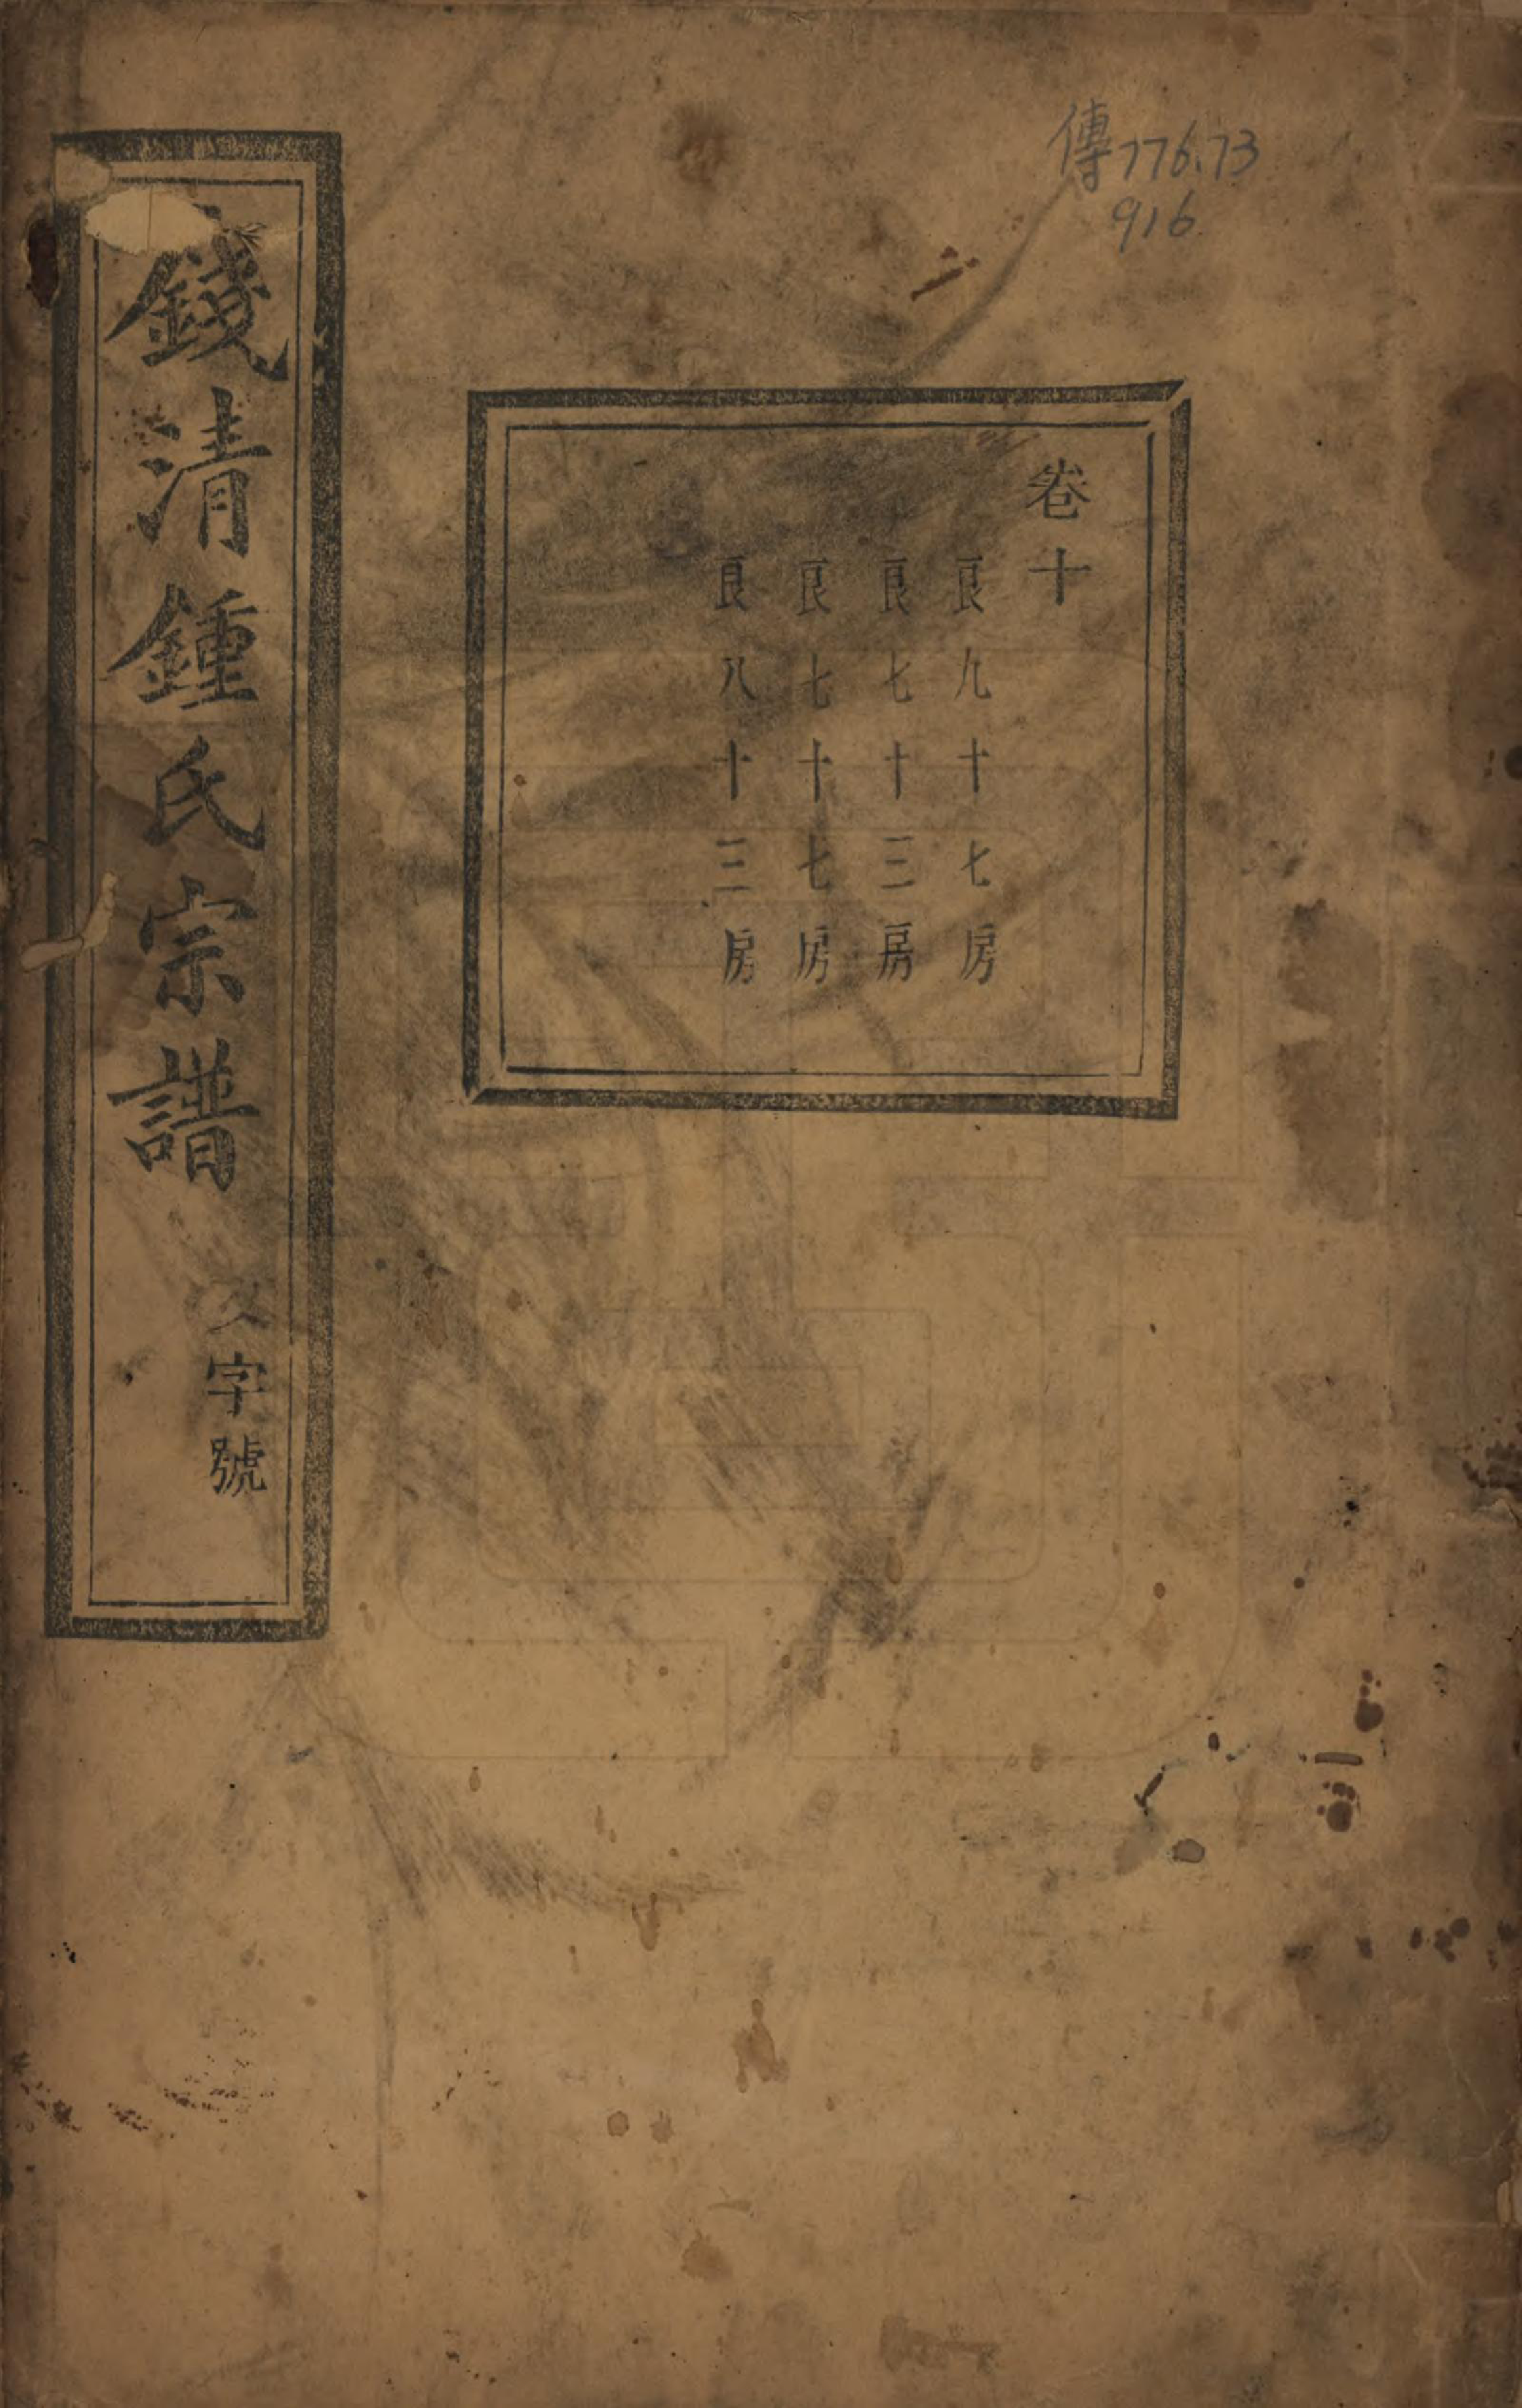 傳776.73
916
卷十
良九十七房
良七十三房
良七十七房
良八十三房
錢清鍾氏宗譜
字號